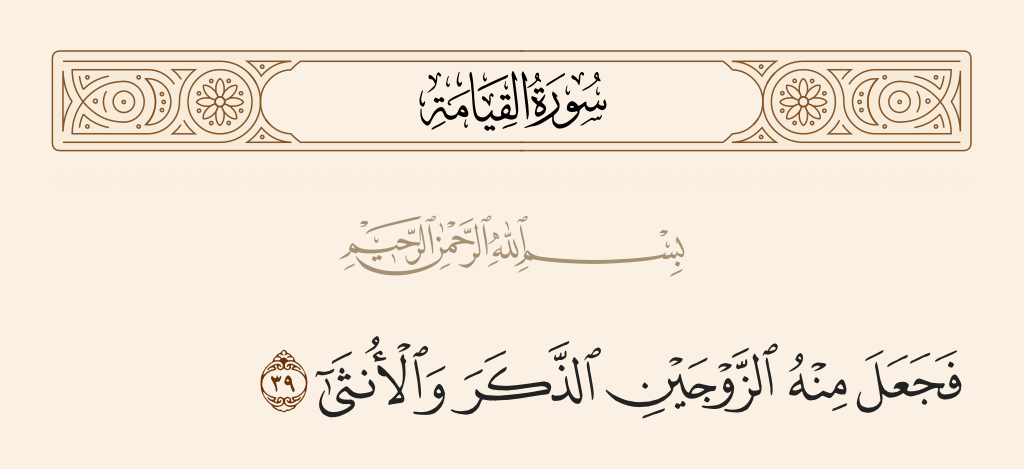 سُورَةُ القِيَامَةِ
بِسْمِ ٱللَّهِ ٱلرَّحْمَٰنِ ٱلرَّحِيمِ
فَجَعَلَ مِنْهُ ٱلزَّوْجَيْنِ ٱلذَّكَرَ وَٱلْأُنثَىٰٓ ٣٩